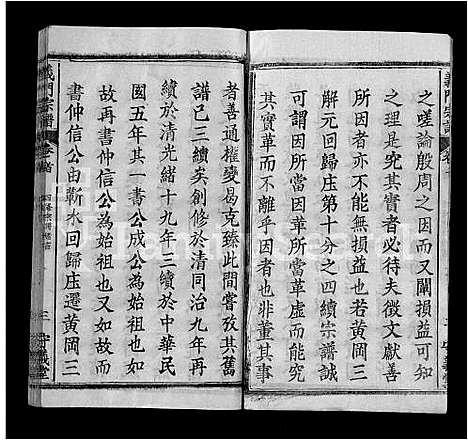 義門宗譜
之嗟論殷周之因而又闡損益可知
之理是究其實者必待夫徵文獻善
所因者亦不能無損益也若黃岡三
元回歸庄第十分之四續宗譜誠
可謂因所當因革所當革虛而能究
其實革而不離乎因者也非董其事
者善通權變曷克臻此間嘗攷其舊
譜已三續矣創修於清同治九年再
續於清光緒十九年三續於中華民
國五年其一書公成公為始祖也又
故再書仲信公為始祖也又如故而
書仲信公由蘄水回歸庄遷黃岡三
義門宗譜 卷首 三 守義堂